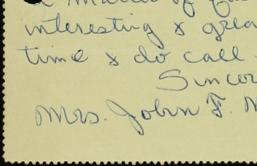 a matter of
interesting & grea
time & do call
Sincer
Mrs. John F. N